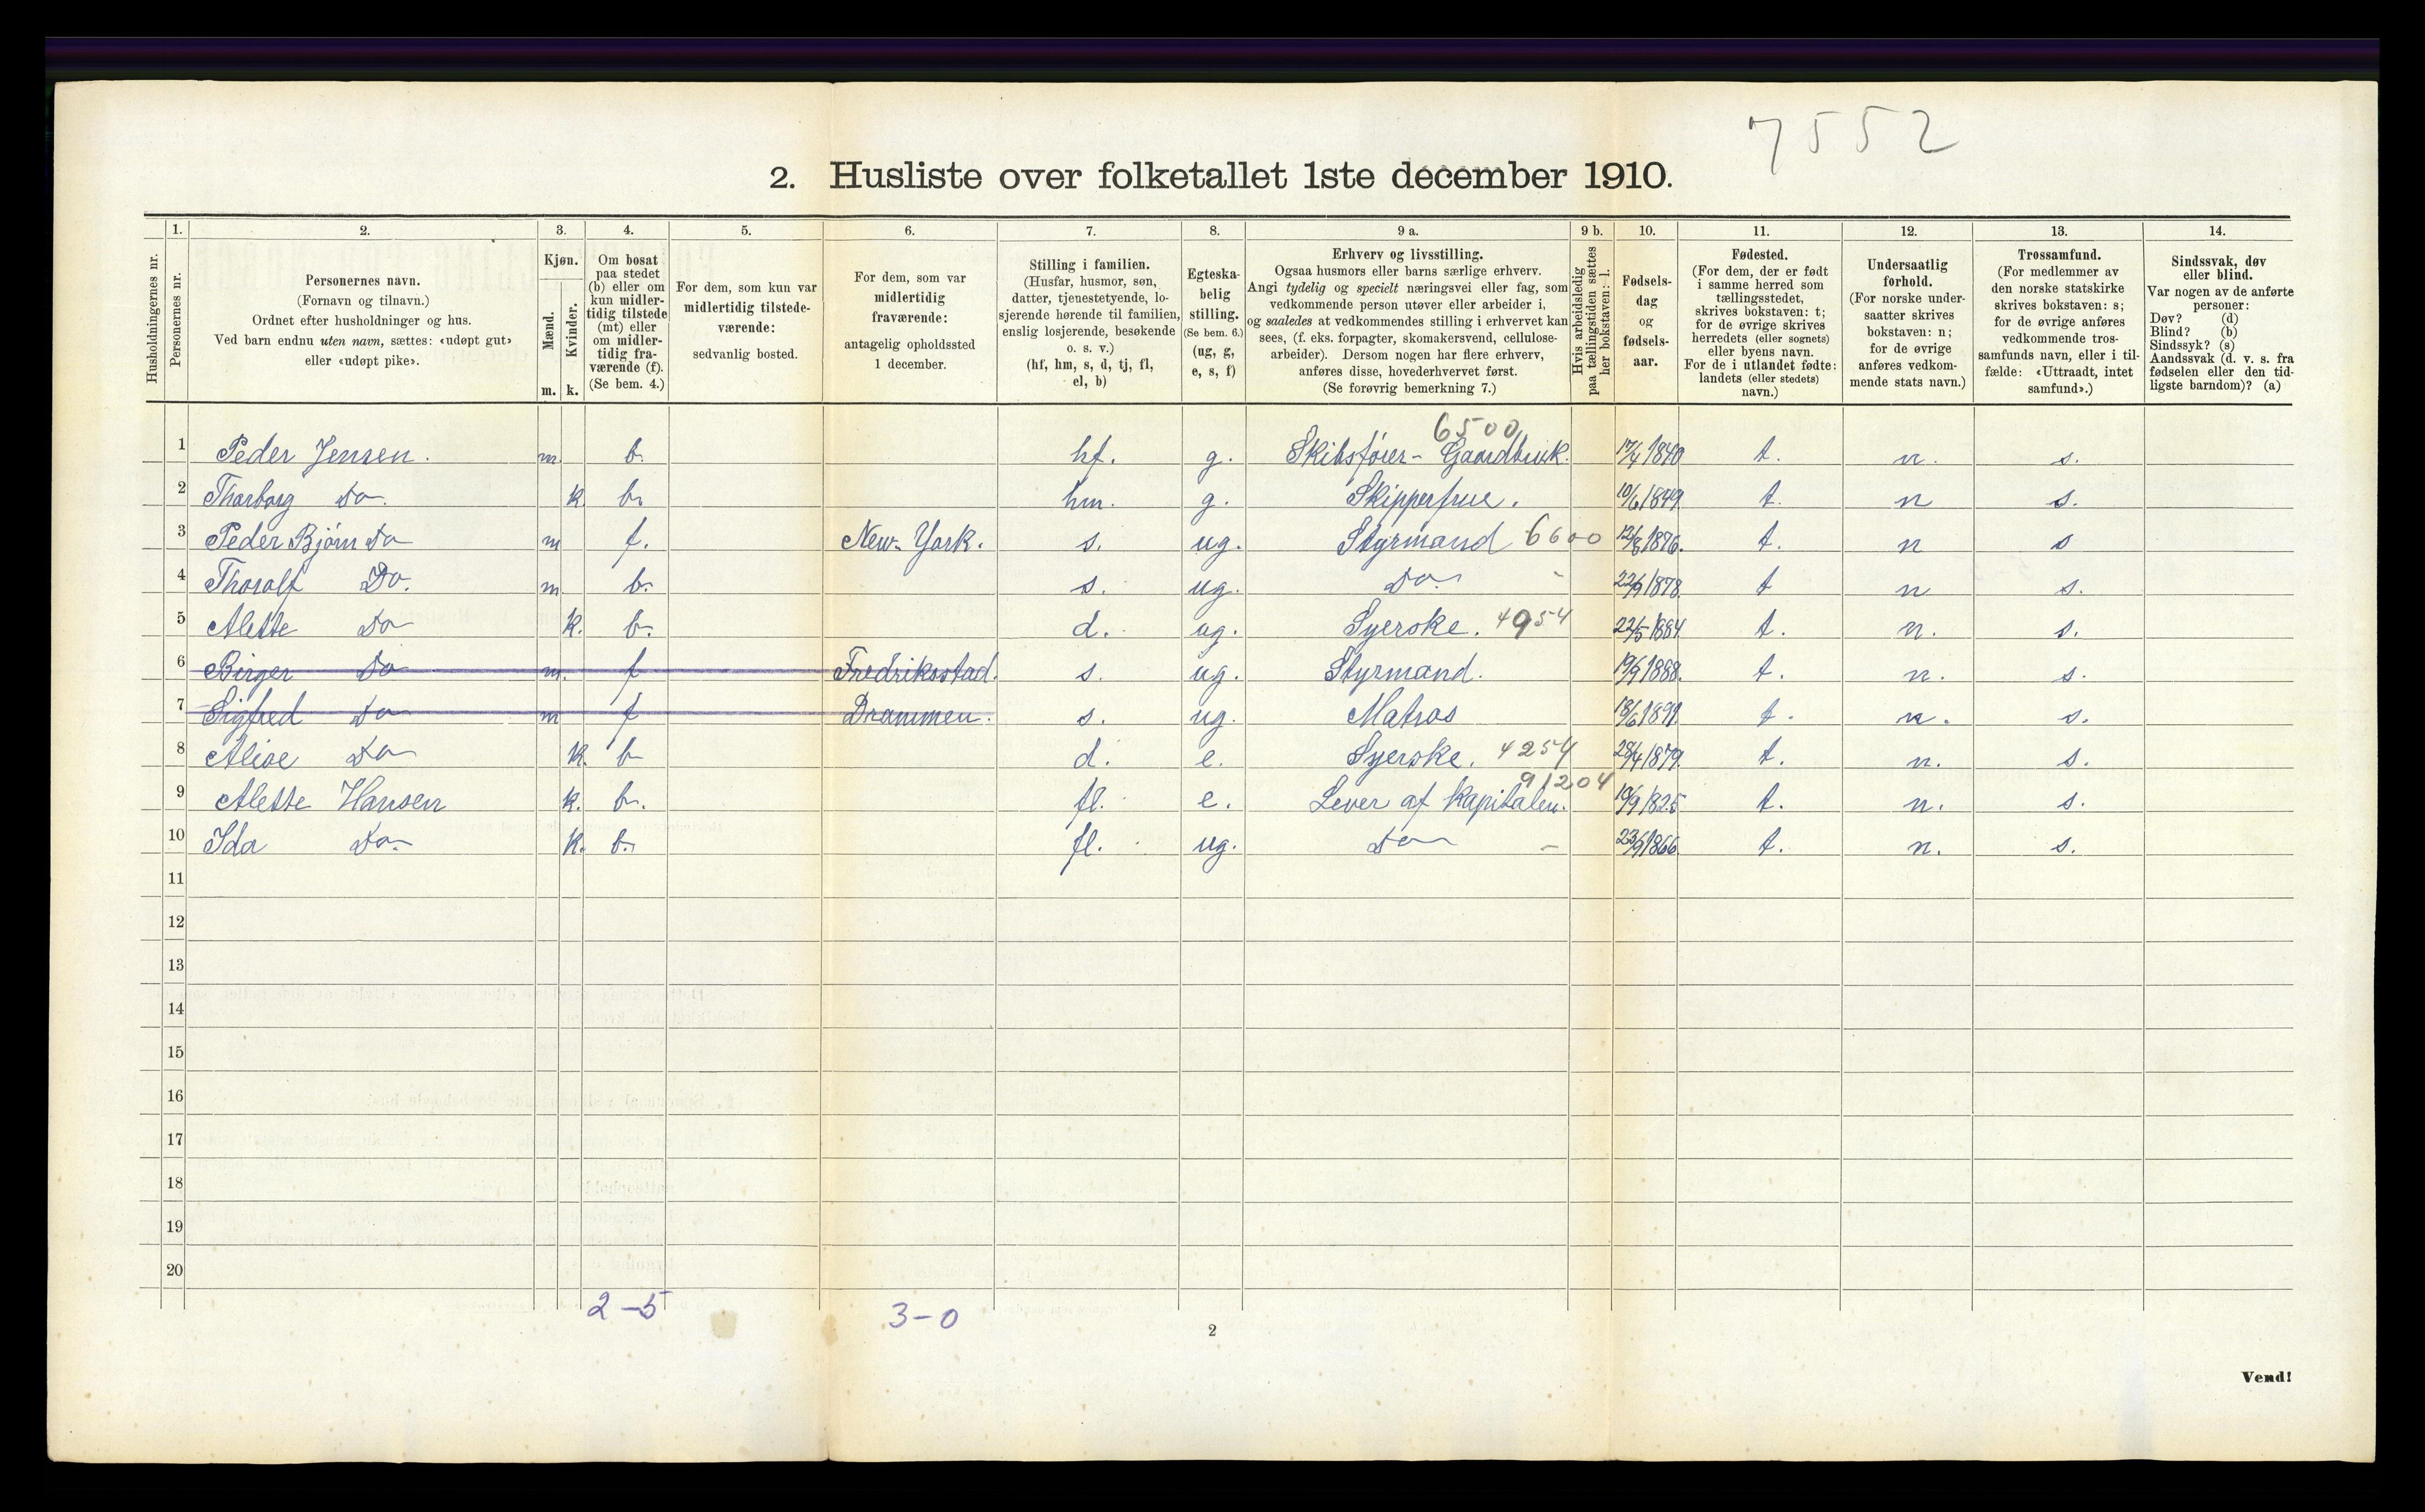 7552
2. Husliste over folketallet 1ste december 1910.
1. 2. 3. 4. 5. 6. 7. 8. 9 a. 9 b. 10. 11. 12. 13. 14.
Husholdningernes nr.
Personernes nr.
Personernes navn.
(Fornavn og tilnavn.)
Ordnet efter husholdninger og hus.
Ved barn endnu uten navn, sættes: «udøpt gut»
eller «udøpt pike».
Kjøn.
Mænd.
Kvinder.
m. k.
Om bosat
paa stedet
(b) eller om
kun midler-
tidig tilstede
(mt) eller
om midler-
tidig fra-
værende (f).
(Se bem. 4.)
For dem, som kun var
midlertidig tilstede-
værende:
sedvanlig bosted.
For dem, som var
midlertidig
fraværende:
antagelig opholdssted
1 december.
Stilling i familien.
(Husfar, husmor, søn,
datter, tjenestetyende, lo-
sjerende hørende til familien,
enslig losjerende, besøkende
o. s. v.)
(hf, hm, s, d, tj, fl,
el, b)
Egteska-
belig
stilling.
(Se bem. 6.)
(ug, g,
e, s, f)
Erhverv og livsstilling.
Ogsaa husmors eller barns særlige erhverv.
Angi tydelig og specielt næringsvei eller fag, som
vedkommende person utøver eller arbeider i,
og saaledes at vedkommendes stilling i erhvervet kan
sees, (f. eks. forpagter, skomakersvend, cellulose-
arbeider). Dersom nogen har flere erhverv,
anføres disse, hovederhvervet først.
(Se forøvrig bemerkning 7.)
Hvis arbeidsledig
paa tællingstiden sættes
her bokstaven: l.
Fødsels-
dag
og
fødsels-
aar.
Fødested.
(For dem, der er født
i samme herred som
tællingsstedet,
skrives bokstaven: t;
for de øvrige skrives
herredets (eller sognets)
eller byens navn.
For de i utlandet fødte:
landets (eller stedets)
navn.)
Undersaatlig
forhold.
(For norske under-
saatter skrives
bokstaven: n;
for de øvrige
anføres vedkom-
mende stats navn.)
Trossamfund.
(For medlemmer av
den norske statskirke
skrives bokstaven: s;
for de øvrige anføres
vedkommende tros-
samfunds navn, eller i til-
fælde: «Uttraadt, intet
samfund».)
Sindssvak, døv
eller blind.
Var nogen av de anførte
personer:
Døv? (d)
Blind? (b)
Sindssyk? (s)
Aandssvak (d. v. s. fra
fødselen eller den tid-
ligste barndom)? (a)
6500
1 Peder Jensen. m b. hf. g. Skibsfører - Gaardbruk. 17/4 1840 t. n. s.
2 Thorborg Do. k b. hm. g. Skipperfrue. 10/6 1849. t. n s.
3 Peder Bjørn Do m f. New-York. s. ug. Styrmand 6600 12/8 1876. t. n s
4 Thoralf Do. m b. s. ug. Do. - 22/9 1878. t n s.
5 Alette Do k. b. d. ug. Syerske. 4954 22/5 1884. t. n. s.
6 Birger Do m. f Fredriksstad. s. ug. Styrmand. 19/9 1888. t. n. s.
7 Sigfred Do m f Drammen. s. ug. Matros 18/6 1891. t. n. s.
8 Do k. b d. e. Syerske. 4254 28/4 1879. t. n. s.
91204
9 Alette Hansen k. b. fl. e. Lever af Kapitalen. 10/9 1825 t. n. s.
10 Ida Do. k. b. fl. ug. Do - 23/9 1866. t. n. s.
11
12
13
14
15
16
17
18
19
20
2-5 3-0
2
Vend!